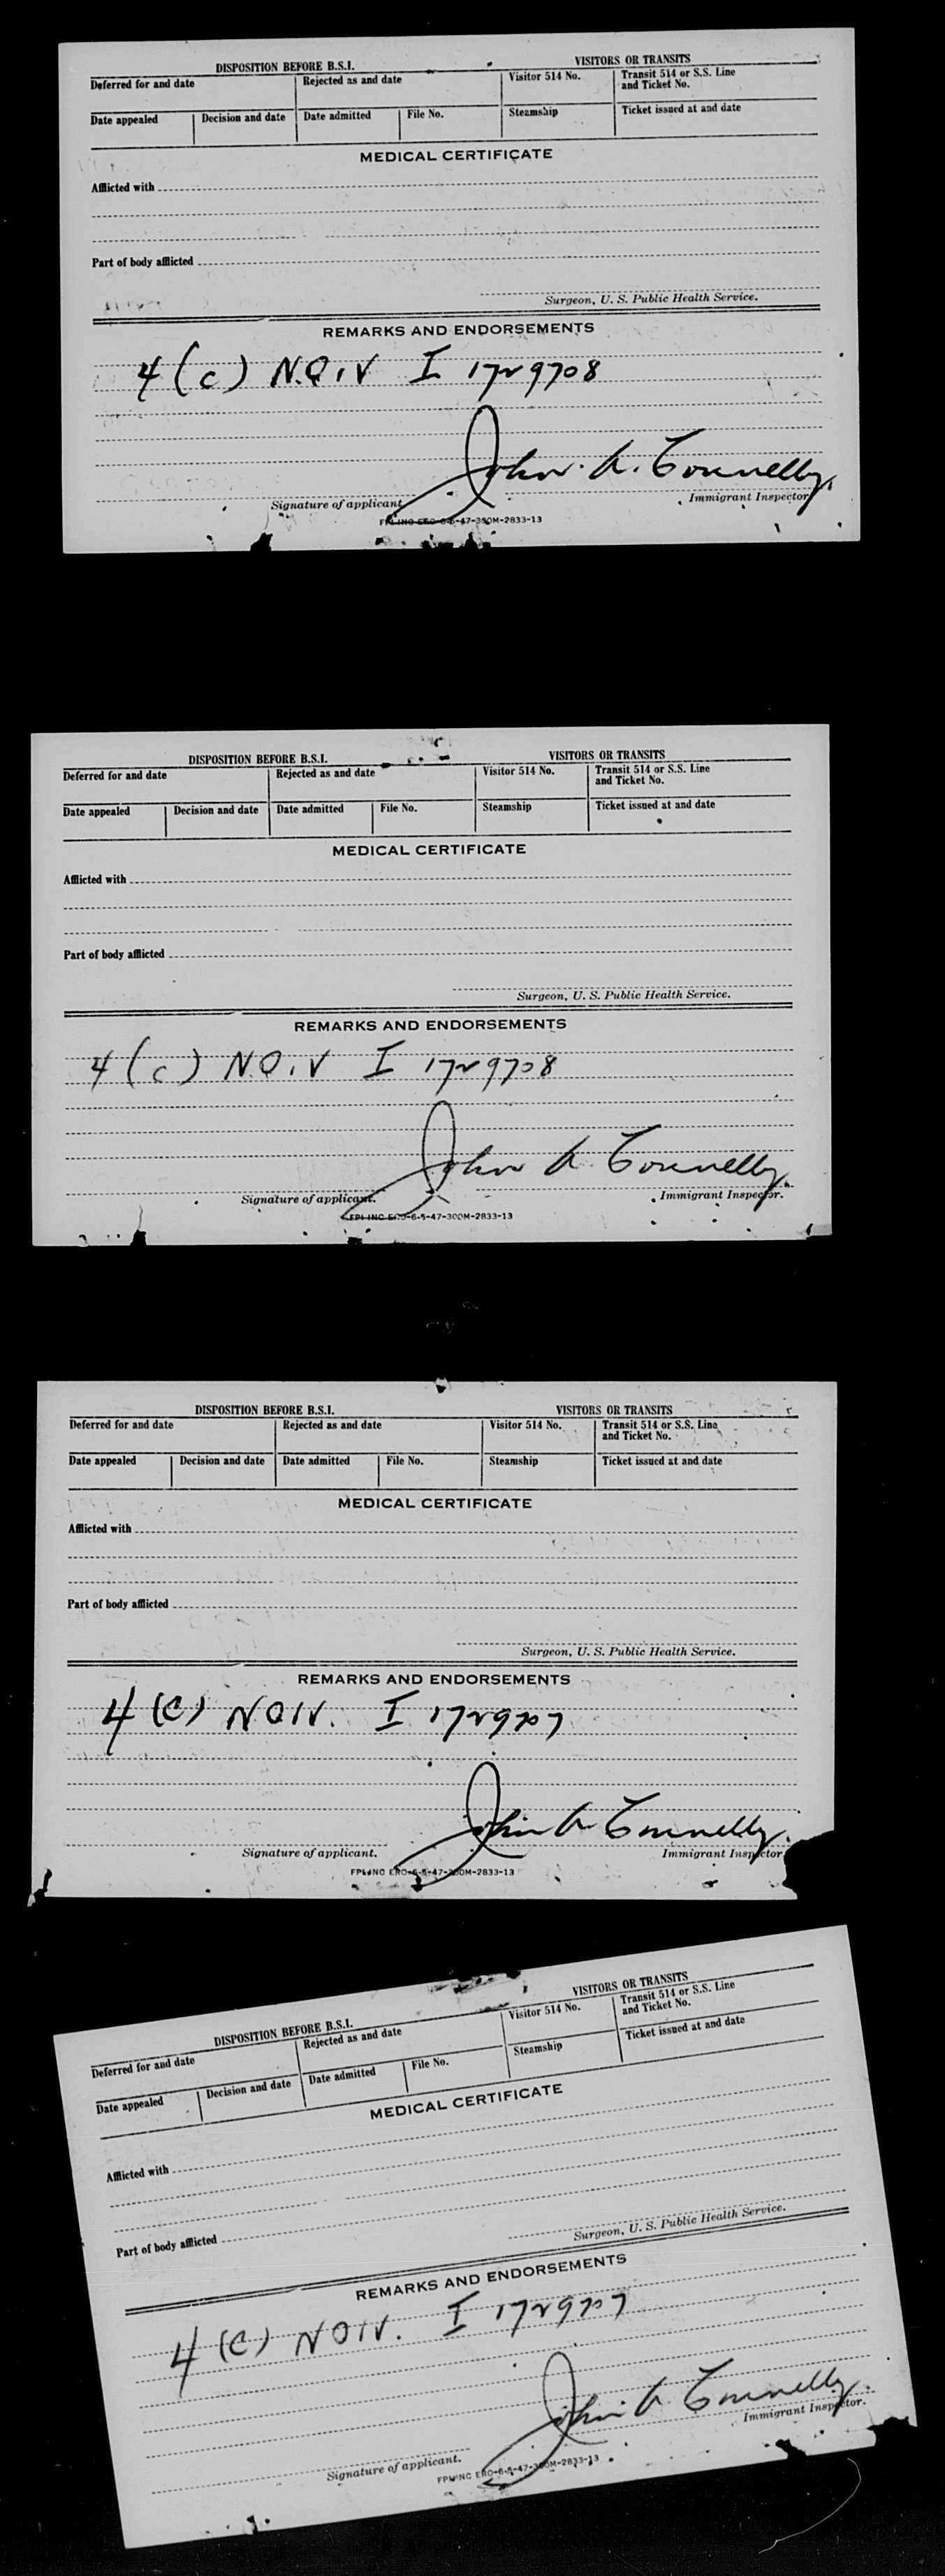 DISPOSITION BEFORE B.S.I. VISITORS OR TRANSITS
Deferred for and date Rejected as and date Visitor 514 No. Transit 514 or S.S. Line
and Ticket No.
Date appealed Decision and date Date admitted File No. Steamship Ticket issued at and date
MEDICAL CERTIFICATE
Afflicted with
Part of body afflicted
Surgeon, U. S. Public Health Service.
REMARKS AND ENDORSEMENTS
4 (c) N.Q.I.V I 1729708
John A. Connelly.
Signature of applicant Immigrant Inspector
FPI INC ERO-6-5-47-300M-2833-13
DISPOSITION BEFORE B.S.I. VISITORS OR TRANSITS
Deferred for and date Rejected as and date Visitor 514 No. Transit 514 or S.S. Line
and Ticket No.
Date appealed Decision and date Date admitted File No. Steamship Ticket issued at and date
MEDICAL CERTIFICATE
Afflicted with
Part of body afflicted
Surgeon, U. S. Public Health Service.
REMARKS AND ENDORSEMENTS
4 (c) N.Q.I.V I 1729708
John A. Connelly.
Signature of applicant. Immigrant Inspector.
FPI INC ERO-6-5-47-300M-2833-13
DISPOSITION BEFORE B.S.I. VISITORS OR TRANSITS
Deferred for and date Rejected as and date Visitor 514 No. Transit 514 or S.S. Line
and Ticket No.
Date appealed Decision and date Date admitted File No. Steamship Ticket issued at and date
MEDICAL CERTIFICATE
Afflicted with
Part of body afflicted
Surgeon, U. S. Public Health Service.
REMARKS AND ENDORSEMENTS
4 (C) NQIV. I 1729707
John A Connelly.
Signature of applicant. Immigrant Inspector
FPI INC ERO-6-5-47-300M-2833-13
DISPOSITION BEFORE B.S.I. VISITORS OR TRANSITS
Deferred for and date Rejected as and date Visitor 514 No. Transit 514 or S.S. Line
and Ticket No.
Date appealed Decision and date Date admitted File No. Steamship Ticket issued at and date
MEDICAL CERTIFICATE
Afflicted with
Part of body afflicted
Surgeon, U. S. Public Health Service.
REMARKS AND ENDORSEMENTS
4 (C) NQIV. I 1729707
John A Connelly.
Signature of applicant. Immigrant Inspector.
FPI INC ERO-6-5-47-300M-2833-13